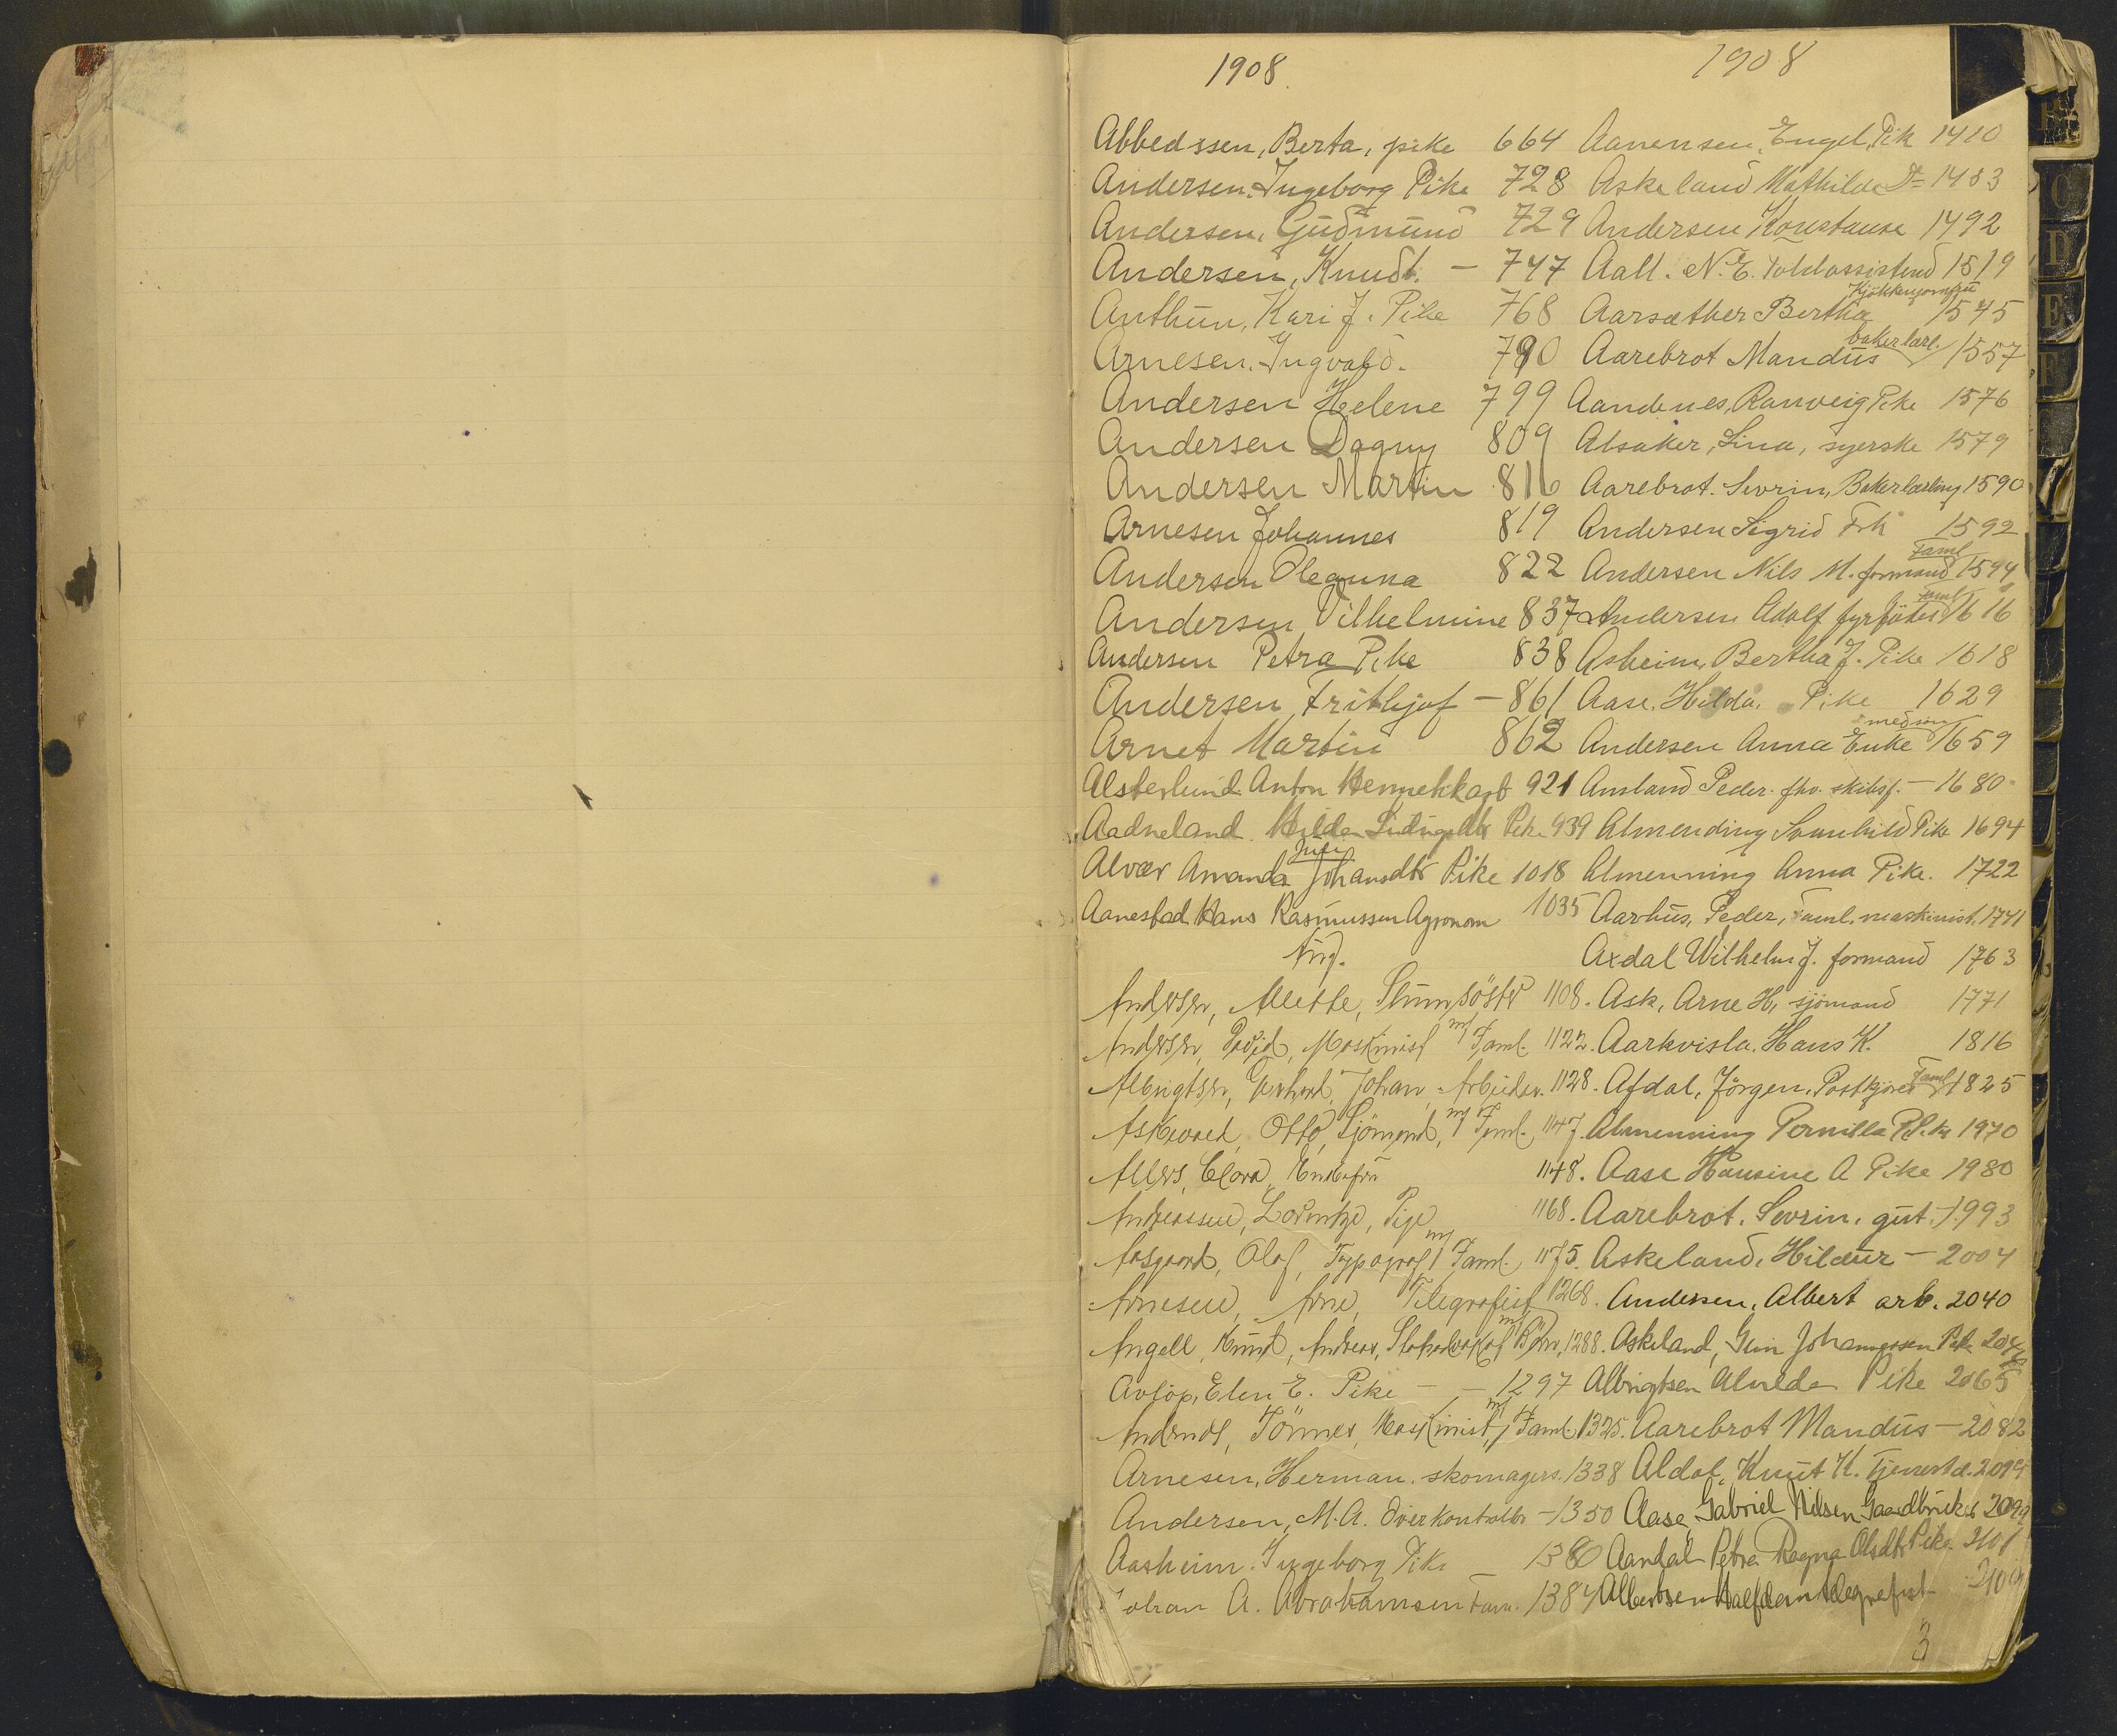 1908
Abbedssen, Berta, pike 664
Andersen, Ingeborg Pike 728
Andersen, Gudmund 729
Andersen, Knudt. — 747
Anthun, Kari J. Pike 768
Arnesen, Ingvald. 790
Andersen Helene 799
Andersen Dagny 809
Andersen Martin 816
Arnesen Johannes 819
Andersen Oleanna 822
Andersen Vilhelmine 837
Andersen Petra Pike 838
Andersen, Frithjof — 861
Arnet Martin 862
Alsterlund Anton 921
Aadneland Hilda Pike 939
Alvær Amanda Johansdtr Pike 1018
Aanestad Hans Rasmussen Agronom 1035
Aug.
Andersen, Mette, 1108.
Andersen, David, Maskinist m/ Faml. 1122.
Albrigtsen, Gerhard, Johan, Arbeider. 1128.
Askevold, Otto, Sjömand, m/ Faml. 1147.
Allers, Clara, Enkefru 1148.
Andreassen, Lorentze, Pige 1168.
Aasgaard, Olaf, Typograf m/ Faml. 1175.
Arnesen, Arne, Telegrafist 1268.
Angell, Knut, Andreas, m/ Börn, 1288.
Avlöp, Elen E. Pike — 1297
Tönnes, Maskinist, m/ Faml. 1325.
Arnesen, Herman. skomagers. 1338
Andersen, M.A. Overkontrollör — 1350
Aasheim. Ingeborg Pike 1380
Johan A. Abrahamsen Fam. 1384
1908
Aanensen, Engel, Pik 1410
Askeland Mathilde Do 1483
Andersen Konstanse 1492
Aall. N. E. Toldassistend 1519
Aarsæther Bertha Kjökkenjomfru 1545
Aarebrot Mandus bakerlærl. 1557
Aandenes, Ranveig Pike 1576
Alsaker, Lina, syerske 1579
Aarebrot. Sevrin, Bakerlærling 1590
Andersen Sigrid Frk 1592
Andersen Nils M. formand Faml 1594
Andersen Adolf fyrböter faml 1616
Asheim, Bertha J. Pike 1618
Aase, Hilda. Pike 1629
Andersen Anna Enke med sön 1659
Ansland Peder. fhv. skibsf. — 1680
Almending Svanhild Pike 1694
Almenning Anna Pike. 1722
Aarhus, Peder, Faml. maskinist. 1741
Axdal Wilhelm J. formand 1763
Ask, Arne H, sjömand 1771
Aarkvisla. Hans K. 1816
Afdal, Jörgen, Postkjörer Faml 1825
Almenning Pernilla P. Pike 1970
Aase Hansine A Pike 1980
Aarebrot, Sevrin, gut. 1993
Askeland, Hildur — 2004
Andersen, Albert arb. 2040
Askeland, Johannessen Pike
Albrigtsen Alvilda Pike 2065
Aarebrot Mandus — 2082
Aldal, Knut K. Tjenestd. 2094
Aase, Gabriel Nilsen Gaardbruker 2099
Aardal Petra Ragna Olsdtr Pike. 2101
Albertsen Halfdan telegrafist
3
C
D
E
F